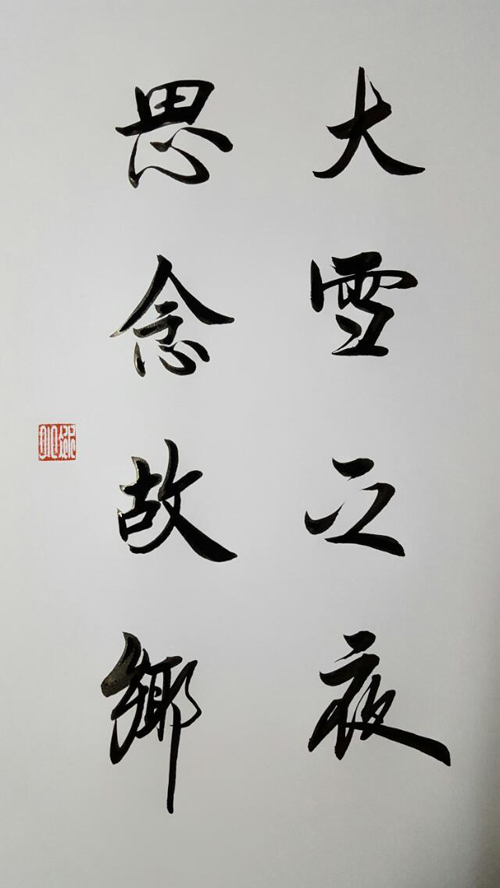 大雪之夜
思念故鄉